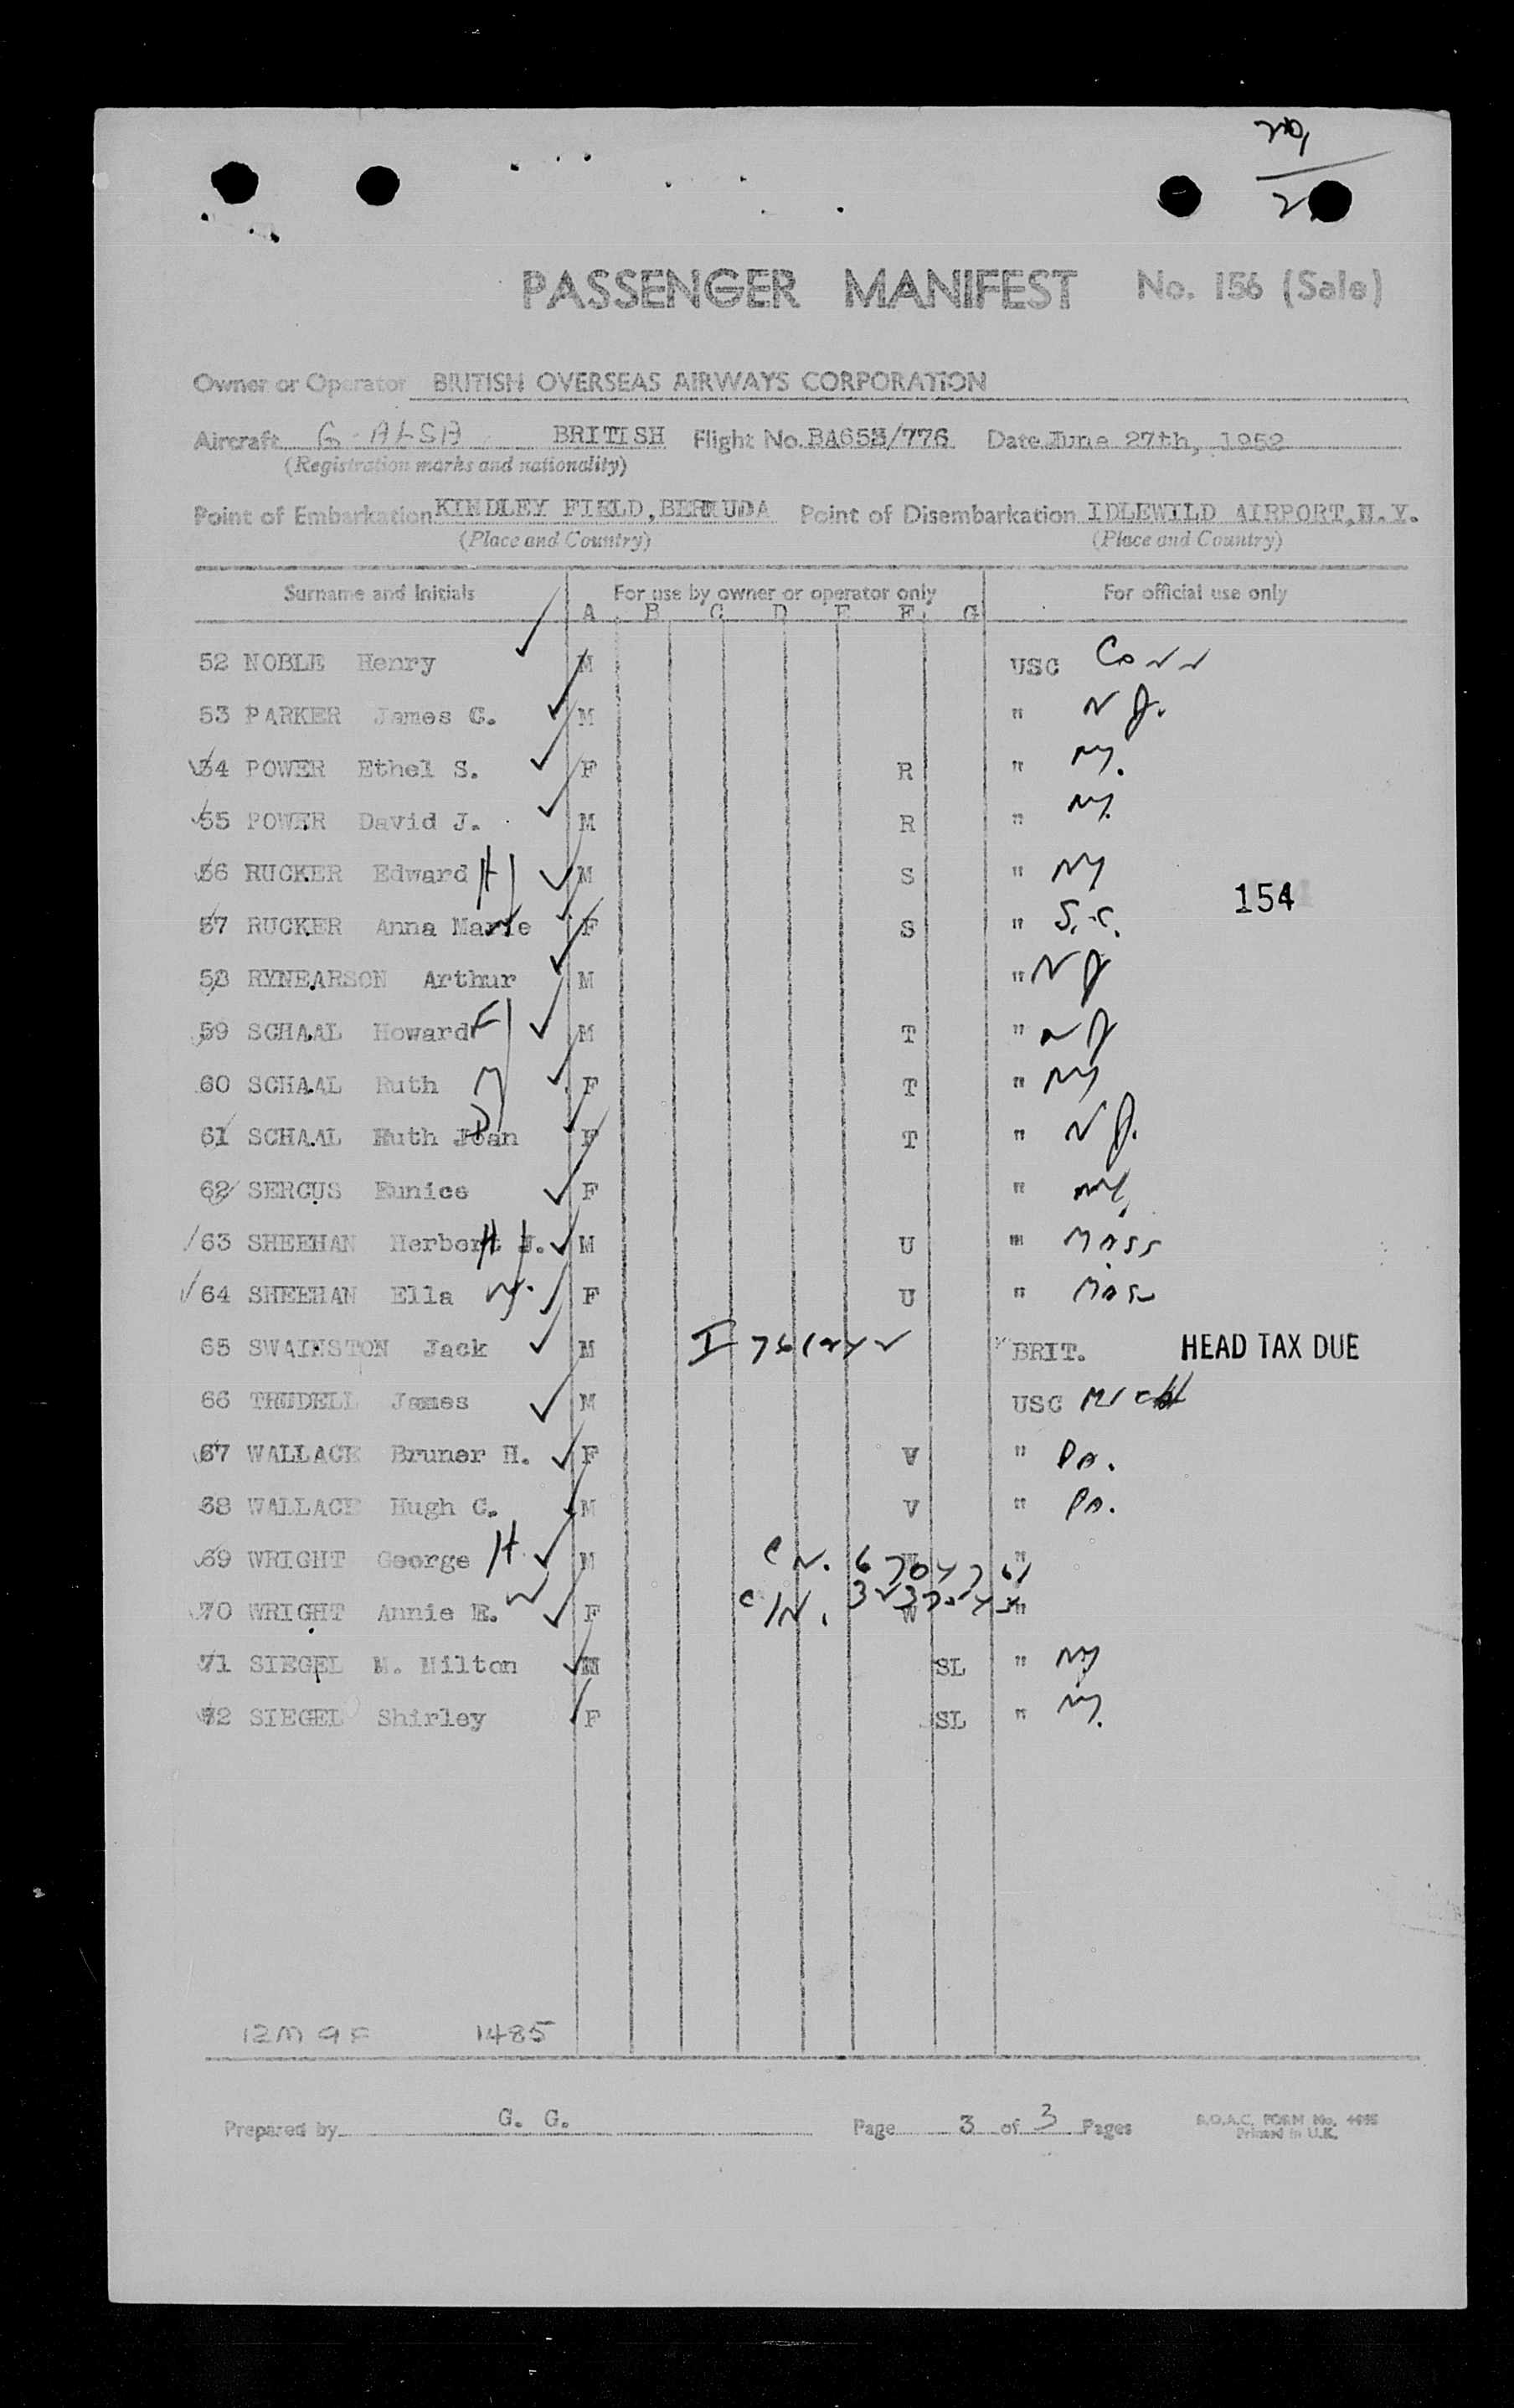 PASSENGER MANIFEST No. 156 (Sale)
Owner or Operator BRITISH OVERSEAS AIRWAYS CORPORATION
Aircraft G-ALSA BRITISH Flight No. BA653/776 Date June 27th, 1952
(Registration marks and nationality)
Point of Embarkation KINDLEY FIELD, BERMUDA Point of Disembarkation IDLEWILD AIRPORT, N.Y.
(Place and Country) (Place and Country)
Surname and Initials For use by owner or operator only For official use only
A B C D E F G
52 NOBLE Henry M USC Conn
53 PARKER James C. M " N J.
54 POWER Ethel S. F R " NY.
55 POWER David J. M R " NY.
56 RUCKER Edward H M S " NY
154
57 RUCKER Anna Marie W F S " S.C.
58 RYNEARSON Arthur M " N J
59 SCHAAL Howard F M T " N J
60 SCHAAL Ruth M F T " NY
61 SCHAAL Ruth Joan D F T " N J.
62 SERGUS Eunice F " NY
63 SHEEHAN Herbert J. H M U " Mass
64 SHEEHAN Ella W F U " Mass
65 SWAINSTON Jack M BRIT. HEAD TAX DUE
66 TRUDELL James M USC Mich
67 WALLACE Bruner H. F V " Pa.
68 WALLACE Hugh C. M V " Pa.
69 WRIGHT George H M C N. W "
70 WRIGHT Annie E. W F C/N. W "
71 SIEGEL M. Milton M SL " NY
72 SIEGEL Shirley F SL " NY.
12M 9F 1485
Prepared by G. G. Page 3 of 3 Pages
B.O.A.C. FORM No.
Printed in U.K.